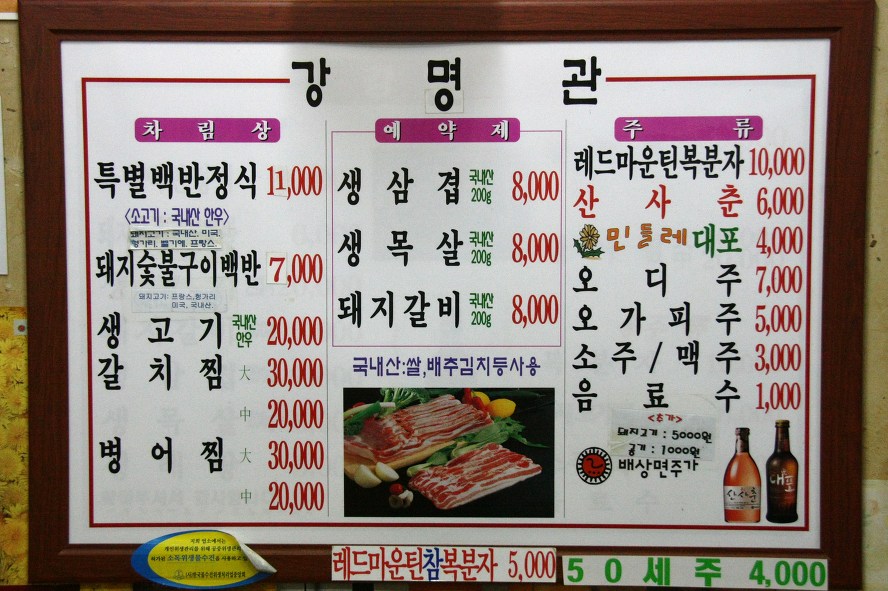 강 명 관
차 림 상
특별백반정식 11,000
<소고기 : 국내산 안우>
돼지고기 : 국내산, 미국,
헝가리, 벨기에, 프랑스.
돼지숯불구이백반 7,000
돼지고기 : 프랑스,헝가리
미국, 국내산.
생 고 기 국내산 안우 20,000
갈 치 찜 大 30,000
中 20,000
병 어 찜 大 30,000
中 20,000
예 약 제
생 삼 겹 국내산 200g 8,000
생 목 살 국내산 200g 8,000
돼지갈비 국내산 200g 8,000
국내산:쌀,배추김치등사용
주 류
레드마운틴복분자 10,000
산 사 춘 6,000
민들레대포 4,000
오 디 주 7,000
오 가 피 주 5,000
소 주 / 맥 주 3,000
음 료 수 1,000
<추가>
돼지고기 : 5000원
공기 : 1000원
배상면주가
산사춘
대포
저희 업소에서는
레드마운틴참복분자 5,000
50세주 4,000